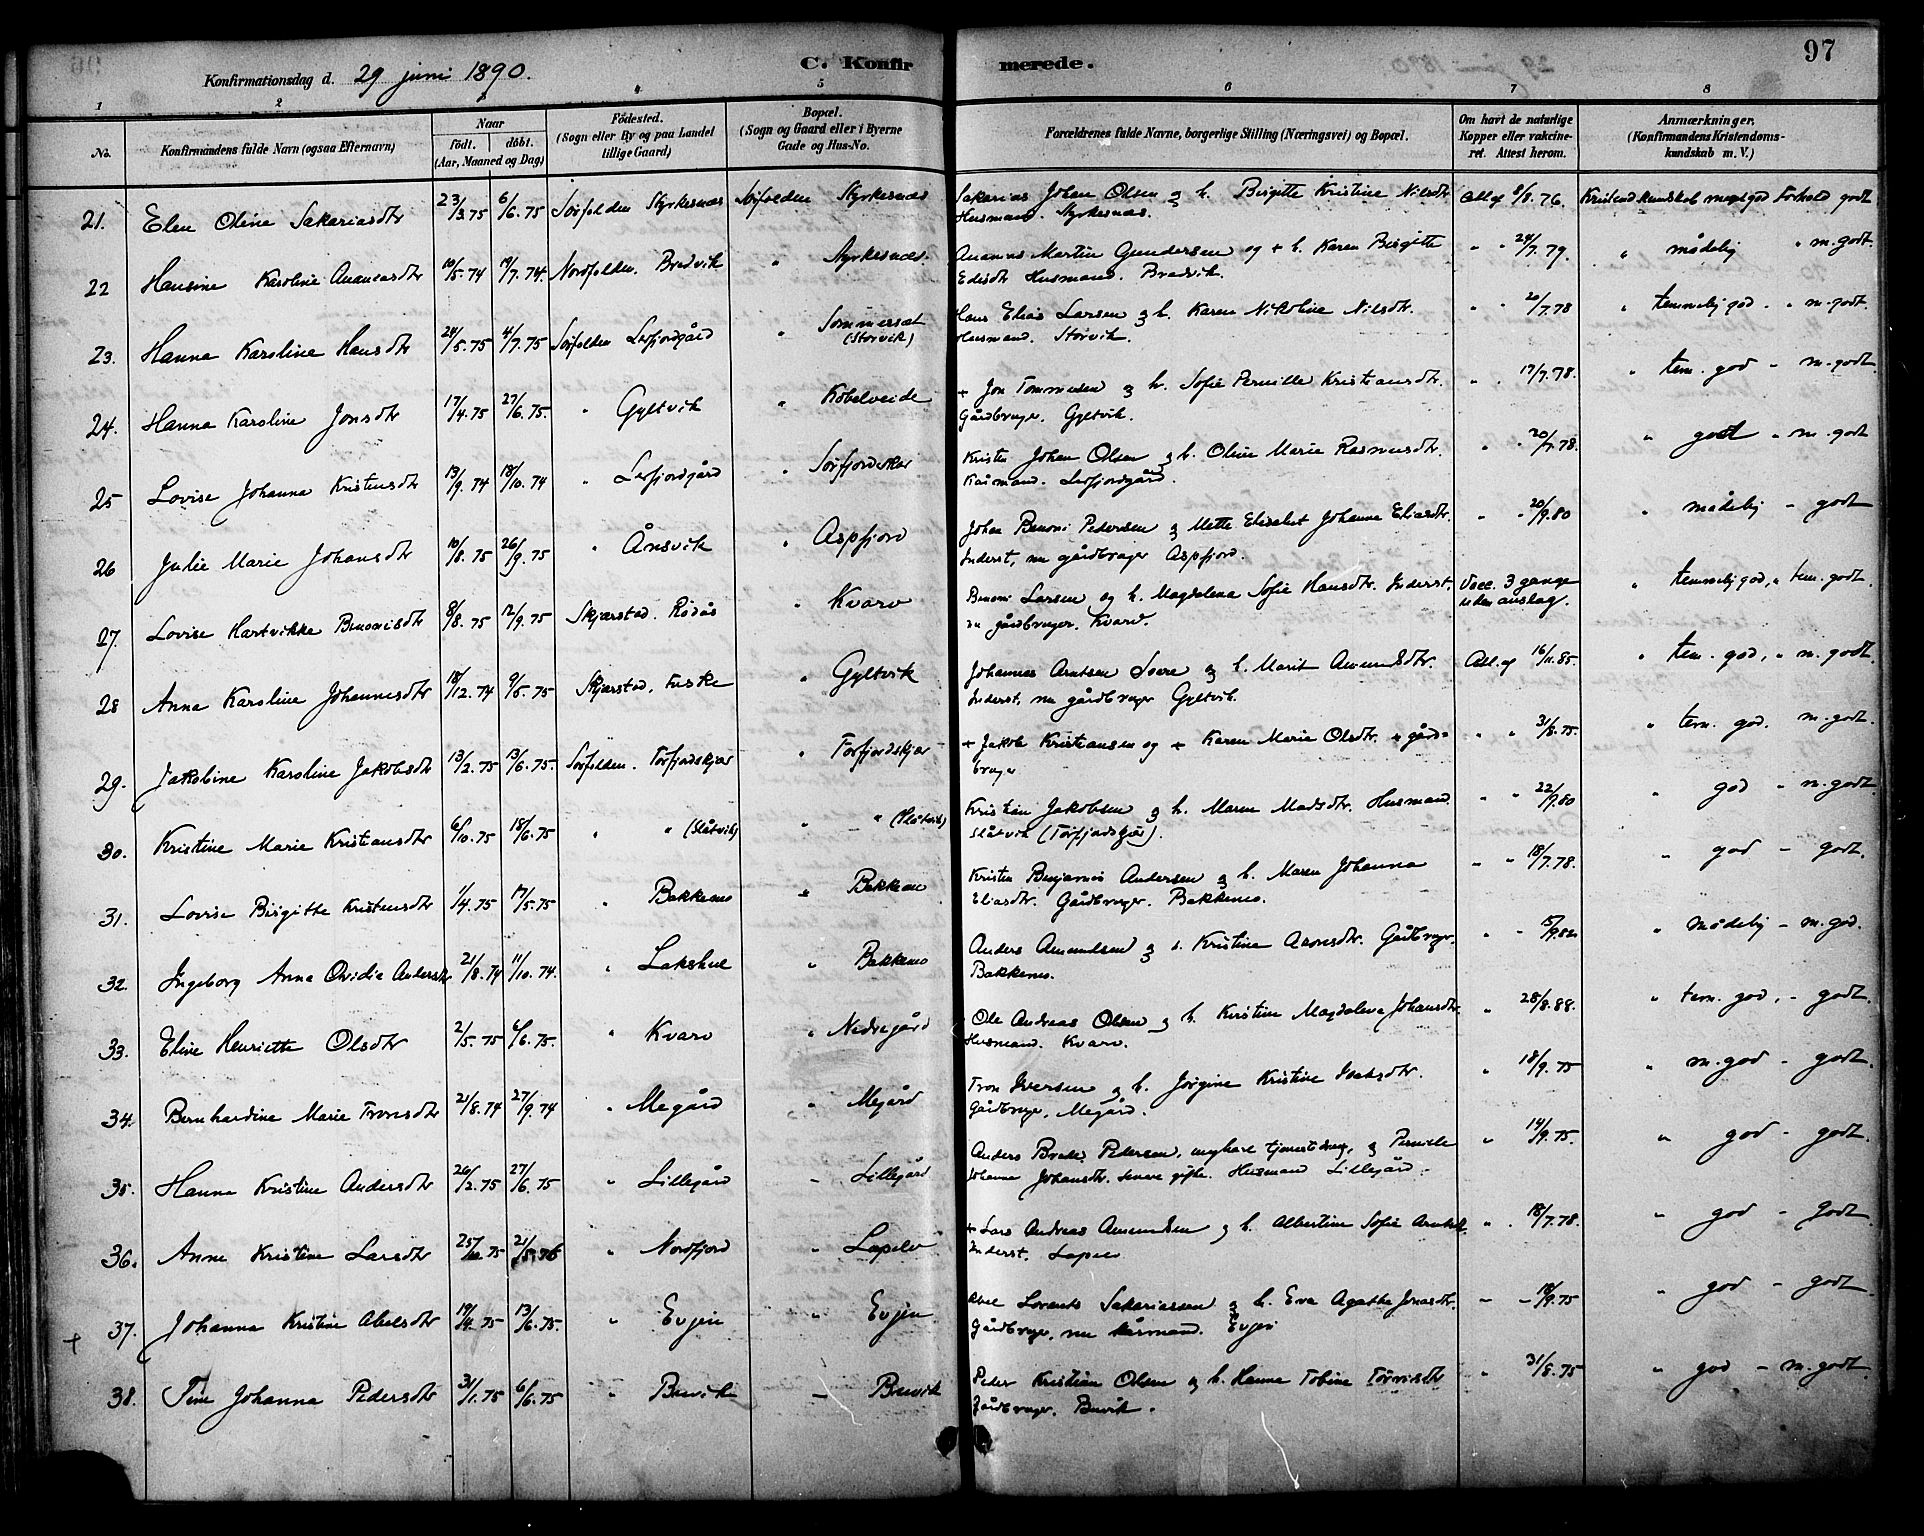 97
Konfirmationsdag d. 29 juni 1890.
C. Konfir merede.
1 2 3 4 5 6 7 8
No.
Konfirmandens fulde Navn (ogsaa Efternavn)
Naar
født. døbt.
(Aar, Maaned og Dag)
Fødested.
(Sogn eller By og paa Landet
tillige Gaard)
Bopæl.
(Sogn og Gaard eller i Byerne
Gade og Hus-No.
Forældrenes fulde Navne, borgerlige Stilling (Næringsvei) og Bopæl.
Om havt de naturlige
Kopper eller vakcine-
ret. Attest herom.
Anmærkninger,
(Konfirmandens Kristendoms-
kundskab m. V.)
21. Elen Oline Sakariasdtr 23/3.75 6/6.75 Sørfolden Styrkesnæs Sørfolden Styrkesnæs Sakarias Johan Olsen og h. Birgitte Kristine Nilsdtr. Att. af 8/8.76. Kristendkundskab meget god Forhold godt
Husmand. Styrkesnæs.
22 Hansine Karoline Ananiasdtr 10/5.74 19/7.74. Nordfolden. Bredvik " Styrkesnæs Ananias Martin Gundersen og + h. Karen Birgitte " " 24/7.79. " mådelig " m. godt
Husmand. Bredvik.
23. Hanna Karoline Hansdtr 24/5.75 4/7.75 Sørfolden Leifjordgård " Sommerset Hans Elias Larsen og h. Karen Nikoline Nilsdtr. " " 20/7.78 " temmelig god. " m. godt.
(Storvik) Husmand. Storvik.
24. Hanna Karoline Jonsdtr 17/4.75 27/6.75 " Gyltvik " Kobelveide + Jon Tommesen og h. Sofie Pernille Kristiansdtr. " " 17/7.78. " tem. god - m. godt.
Gårdbruger. Gyltvik.
25 Lovise Johanna Kristensdtr 13/9.74 18/10.74 " Leifjordgård " Sørfjordskar Kristen Johan Olsen og h. Oline Marie Rasmusdtr. " " 20/7.78. " godt " m. godt
Kårmand. Leifjordgård.
26 Julie Marie Johansdtr 10/8.75 26/9.75 " Ånsvik " Aspfjord Johan Benoni Pedersen og Mette Elisabet Johanna Eliasdtr. " " 20/9.80 " mådelig - godt
Inderst, nu gårdbruger Aspfjord.
27. Lovise Hartvikke Benonisdtr 8/8.75 12/9.75 Skjærstad. Røsås " Kvarv Benoni Larsen og h. Magdalena Sofie Hansdtr. Inderst, Vacc. 3 gange " temmelig god, " tem. godt.
nu gårdbruger. Kvarv. uden anslag.
28 Anna Karoline Johannesdtr 18/12.74 9/5.75 Skjærstad. Fuske " Gyltvik Johannes Arntsen og h. Marit Amundsdtr. Att. af 16/11.85. " tem. god, " m. godt.
Inderst, nu gårdbruger Gyltvik.
29. Jakobine Karoline Jakobsdtr 13/2.75 13/6.75. Sørfolden. Tørfjordskjær " Tørfjordskjær + Jakob Kristiansen og + Karen Marie Olsdtr. gård- " " 31/8.75 " tem. god. m. godt.
bruger
30. Kristine Marie Kristiansdtr 6/10.75 18/6.75 " " (Slåtvik) " " (Slåtvik) Kristian Jakobsen og h. Maren Madsdtr. Husmand " " 22/9.80 " god " m. godt.
Slåtvik (Tørfjordskjær).
31. Lovise Birgitte Kristensdtr 1/4.75 17/5.75 " Bakkemo " Bakkemo Kristen Benjamin Andersen og h. Maren Johanna " " 18/7.78. " god - godt.
Eliasdtr. Gårdbruger. Bakkemo.
32. Ingeborg Anna Ovidie Andersdtr 21/8.74 11/10.74. " Lakshul " Bakkemo Anders Amundsen og h. Kristine Aronsdtr. Gårdbruger. " - 15/9.82 " mådelig - m. god.
Bakkemo.
33. Eline Henriette Olsdtr 2/5.75 6/6.75. " Kvarv " Nedregård Ole Andreas Olsen og h. Kirstine Magdalena Johansdtr. " 28/8.88. " tem. god, - godt.
Husmand. Kvarv.
34. Bernhardine Marie Tronsdtr 21/8.74 27/9.74 " Megård " Megård Tron Iversen og h. Jørgine Kristine Isaksdtr. " 18/9.75 " m. god - godt.
Gårdbruger, Megård.
35. Hanna Kristine Andersdtr 26/2.75 27/6.75 " Lillegård - Lillegård Anders Pedersen, ungkarl tjenestedreng, og Pernille " 14/9.75. " god - godt.
Johanna Johansdtr. senere gifte. Husmand Lillegård.
36. Anne Kristine Larsdtr 25/12.75 21/5.76 " Nordfjord " Lapelv + Lars Andreas Amundsen og h. Albertine Sofie Arntsdtr. " " 18/7.78. " god - godt.
Inderst. Lapelv
37. Johanna Kristine Abelsdtr 19/4.75 13/6.75. " Evjen " Evjen Abel Lorents Sakariassen og h. Eva Agathe Jonasdtr. - - 18/9.75 " god - godt.
+ Gårdbruger, nu kårmand. Evjen
38. Tine Johanna Pedersdtr 31/1.75 6/6.75 " Buvik - Buvik Peder Kristian Olsen og h. Hanna Tobine " 31/8.75 " god - m. godt
Gårdbruger. Buvik.